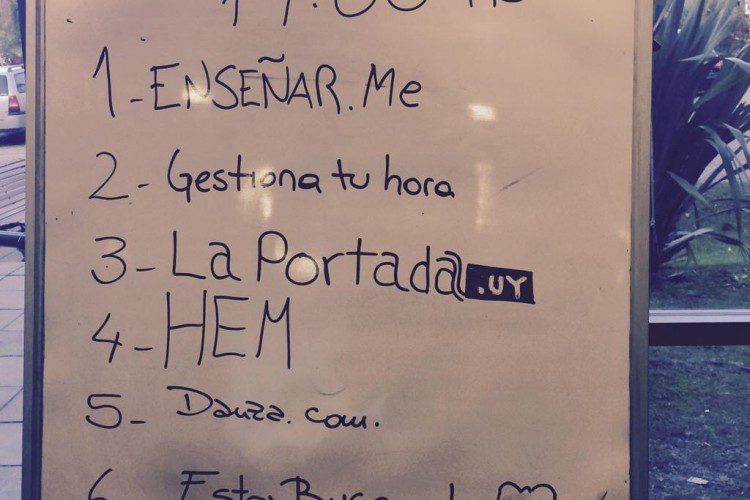 1-ENSEÑAR.Me
2- Gestiona tu hora
3-La Portada.UY
4-HEM
5- Danza.com.